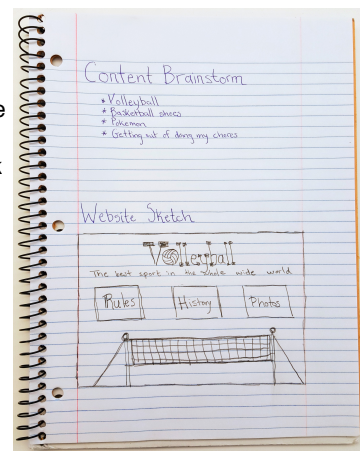 e
k
Content Brainstorm
* Volleyball
* Basketball shoes
* Pokemon
* Getting out of doing my chores
Website Sketch
Volleyball
The best sport in the whole wide world
Rules History Photos